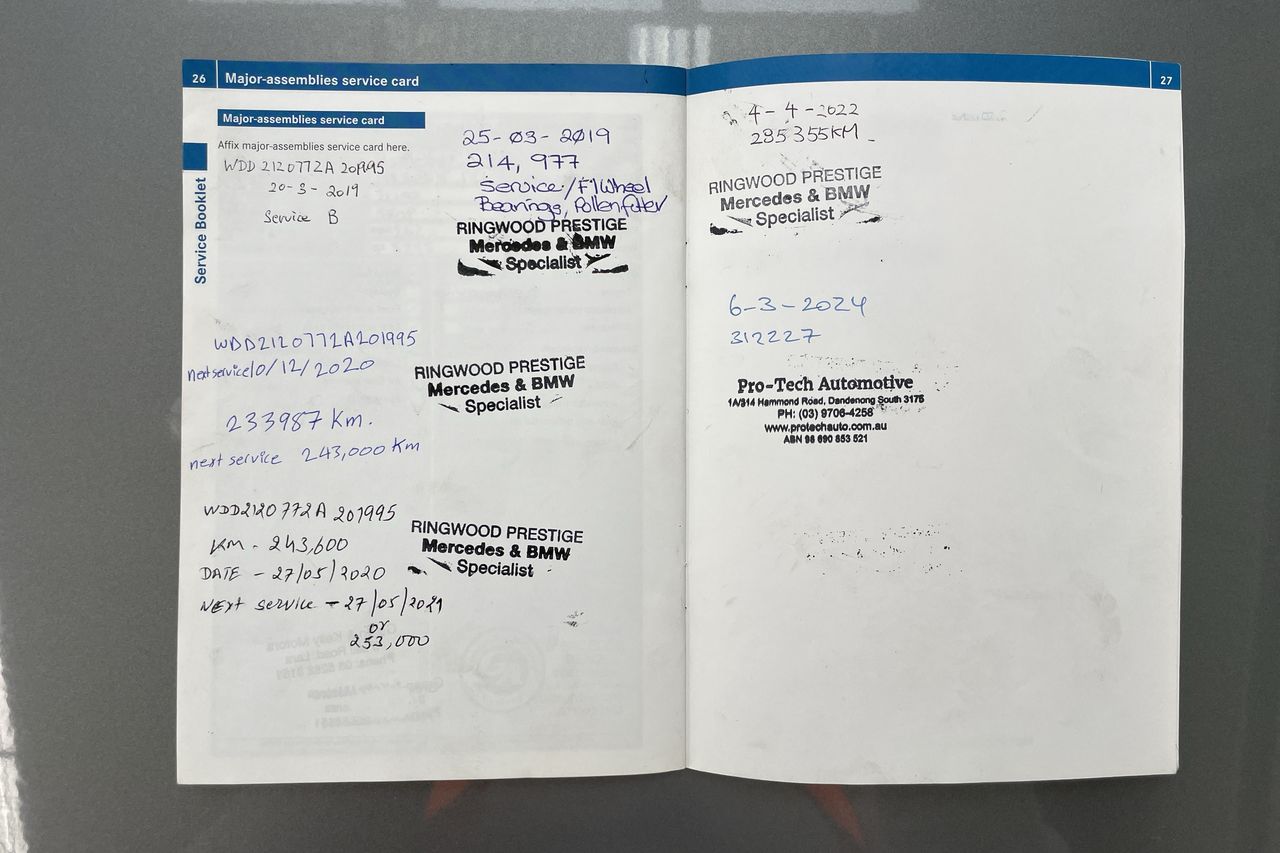 26 Major-assemblies service card
Major-assemblies service card
Affix major-assemblies service card here.
WDD 2120772A 201995
20-3-2019
Service B
Service Booklet
25-03-2019
214,977
Service/F1Wheel
Bearings, Pollenfilter
RINGWOOD PRESTIGE
Mercedes & BMW
Specialist
WDD2120772A201995
next service 10/12/2020
233987 Km.
next service 243,000 Km
RINGWOOD PRESTIGE
Mercedes & BMW
Specialist
WDD2120772A 201995
KM - 243,600
DATE - 27/05/2020
NEXT Service - 27/05/2021
or
253,000
RINGWOOD PRESTIGE
Mercedes & BMW
Specialist
27
4-4-2022
285355KM
RINGWOOD PRESTIGE
Mercedes & BMW
Specialist
6-3-2024
312227
Pro-Tech Automotive
1A/314 Hammond Road, Dandenong South 3175
PH: (03) 9706-4258
www.protechauto.com.au
ABN 98 690 853 521